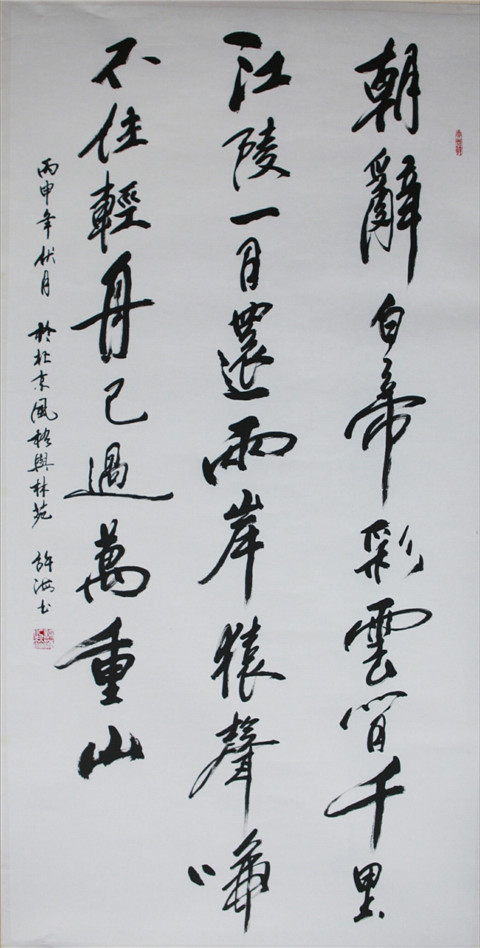 朝辭白帝彩雲間千里
江陵一日還兩岸猿聲啼
不住輕舟已過萬重山
丙申年伏月於北京風格與林苑 許海書